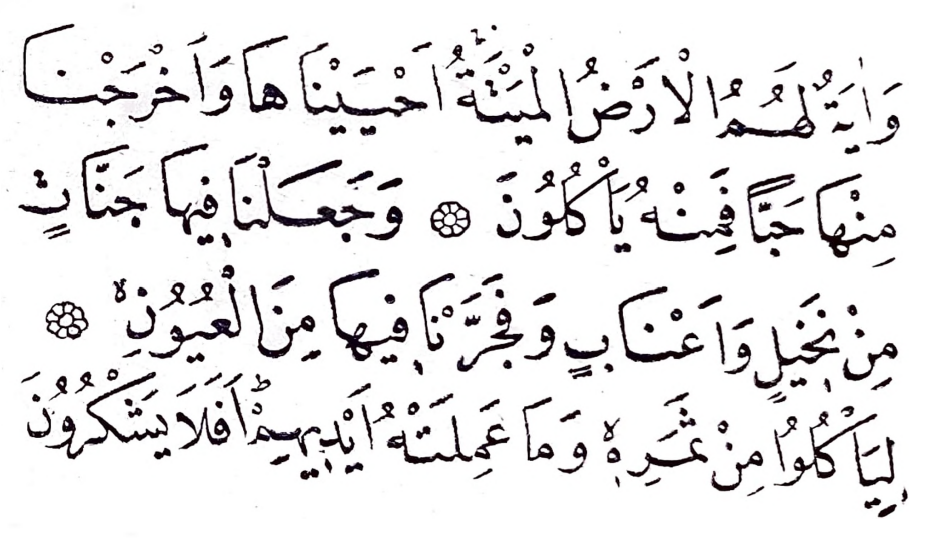 وَاٰيَةٌ لَهُمُ الْاَرْضُ الْمَيْتَةُ اَحْيَيْنَاهَا وَاَخْرَجْنَا
مِنْهَا حَبًّا فَمِنْهُ يَأْكُلُونَ ۞ وَجَعَلْنَا فِيهَا جَنَّاتٍ
مِنْ نَخِيلٍ وَاَعْنَابٍ وَفَجَّرْنَا فِيهَا مِنَ الْعُيُونِ ۞
لِيَأْكُلُوا مِنْ ثَمَرِهِ وَمَا عَمِلَتْهُ اَيْدِيهِمْ اَفَلَا يَشْكُرُونَ